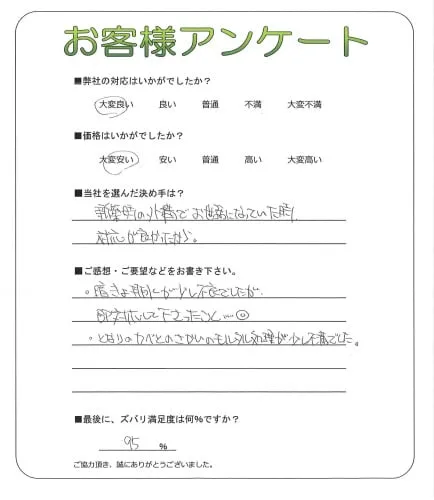 お客様アンケート
■弊社の対応はいかがでしたか？
大変良い 良い 普通 不満 大変不満
■価格はいかがでしたか？
大変安い 安い 普通 高い 大変高い
■当社を選んだ決め手は？
の外構でお世話になっていた時、
対応が良かったから。
■ご感想・ご要望などをお書き下さい。
が少し不良でしたが、
即対応して下さったこと…
・となりのカベとのさかいのモルタル処理が少し不満でした。
■最後に、ズバリ満足度は何%ですか？
95 %
ご協力頂き、誠にありがとうございました。